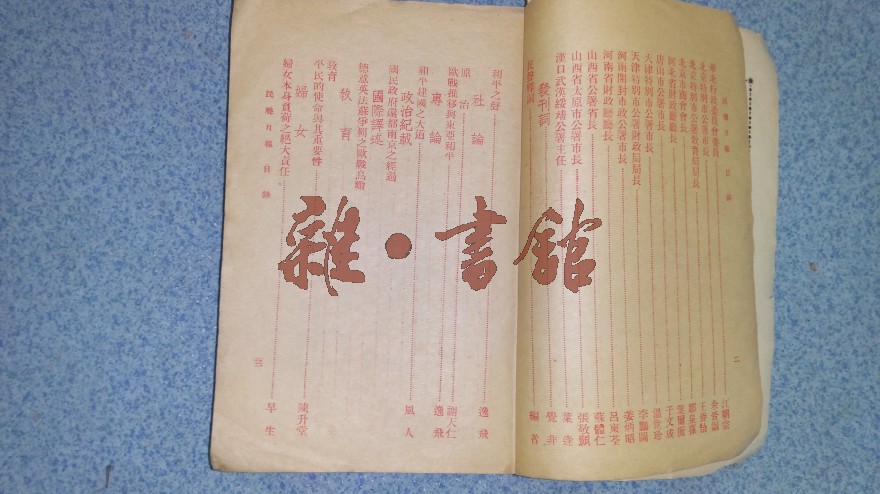 華北行政委員會委員 江朝宗
北京特別市公署市長 余晉龢
北京特別市公署教育局局長 王養怡
北京市商會會長 鄒泉蓀
河北省財政廳廳長
唐山市公署市長 于文成
大津特別市公署市長 溫世珍
天津特別市公署財政局局長 李鵬圖
河南開封市政公署市長 姜炳昭
河南省財政廳廳長 呂東荃
山西省公署省長 蘇體仁
山西省太原市公署市長 張敬顥
漢口武漢綏靖公署主任 葉蓬
發刊詞 覺非
民聲釋詞 編者
二
民聲月報 目錄
社論
和平之聲 逸飛
原治 謝天仁
歐戰推移與東亞和平 逸飛
專論
和平建國之大道 風人
政治紀載
國民政府還都南京之經過
國際譯述
德意英法蘇爭霸之歐戰鳥瞰
教育
平民的使命與其重要性 陳升堂
婦女
婦女本身負荷之絕大責任 早生
民聲月報 目錄
三
雜·書館